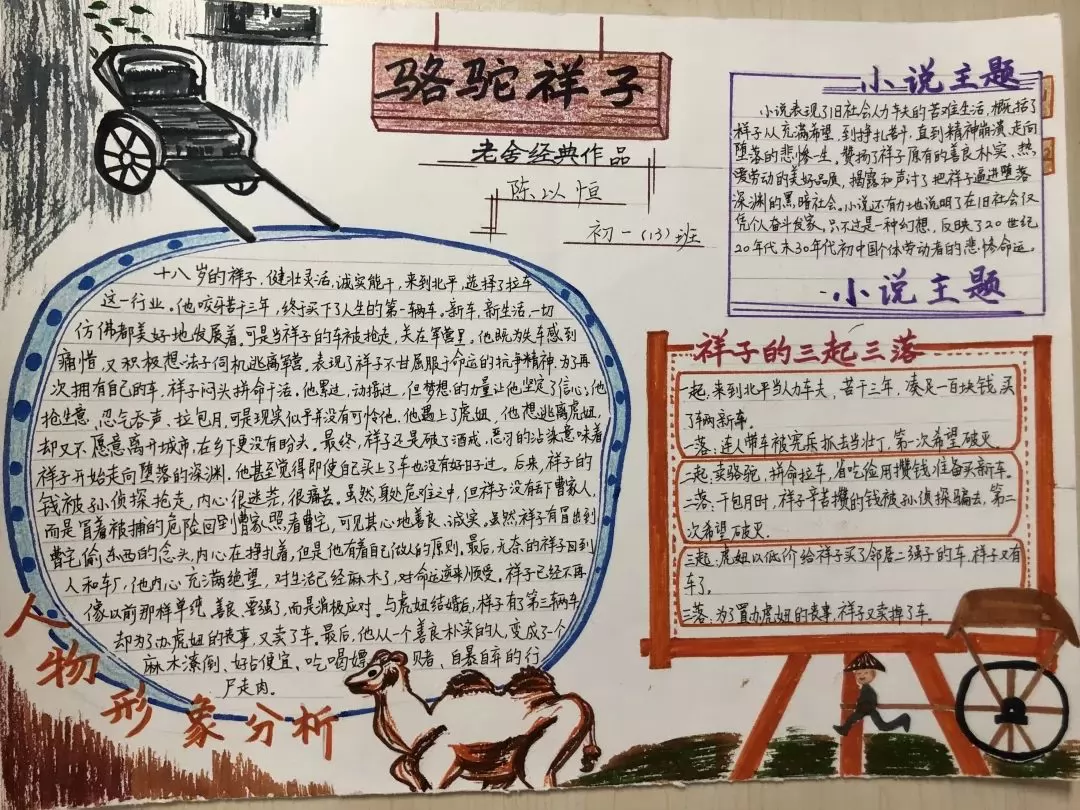 骆驼祥子
老舍经典作品
陈以恒
初一(13)班
小说主题
小说表现了旧社会人力车夫的苦难生活,概括了
祥子从充满希望,到挣扎苦斗,直到精神崩溃,走向
堕落的悲惨一生。赞扬了祥子原有的善良朴实、热
爱劳动的美好品质,揭露和声讨了把祥子逼进堕落
深渊的黑暗社会。小说还有力地说明了在旧社会仅
凭个人奋斗发家,只不过是一种幻想,反映了20世纪
20年代末30年代初中国个体劳动者的悲惨命运。
小说主题
十八岁的祥子,健壮灵活,诚实能干,来到北平,选择了拉车
这一行业。他咬牙苦干三年,终于买下了人生的第一辆车。新车,新生活,一切
仿佛都美好地发展着。可是当祥子的车被抢走,关在军营里。他既为失车感到
痛惜,又积极想法子伺机逃离军营,表现了祥子不甘屈服于命运的抗争精神。为了再
次拥有自己的车,祥子闷头拼命干活。他累过,动摇过,但梦想的力量让他坚定了信心,他
抢生意,忍气吞声,拉包月,可是现实似乎并没有可怜他。他遇上了虎妞,他想逃离虎妞,
却又不愿意离开城市,在乡下更没有盼头。最终,祥子还是破了酒戒,恶习的沾染意味着
祥子开始走向堕落的深渊。他甚至觉得即使自己买上了车也没有好日子过。后来,祥子的
钱被孙侦探抢走,内心很迷茫,很痛苦。虽然身处危难之中,但祥子没有丢下曹家人,
而是冒着被捕的危险回到曹家照看曹宅,可见其心地善良、诚实。虽然祥子有冒出到
曹宅偷东西的念头,内心在挣扎着,但是他有着自己做人的原则。最后,无奈的祥子回到
人和车厂,他内心充满绝望,对生活已经麻木了,对命运逆来顺受。祥子已经不再
像以前那样单纯、善良、要强了,而是消极应对,与虎妞结婚后,祥子有了第三辆车,
却为了办虎妞的丧事,又卖了车。最后,他从一个善良朴实的人,变成了一个
麻木潦倒、好占便宜、吃喝嫖赌、自暴自弃的行
尸走肉。
人物形象分析
祥子的三起三落
一起:来到北平当人力车夫,苦干三年,凑足一百块钱,买
了辆新车。
一落:连人带车被宪兵抓去当壮丁,第一次希望破灭。
二起:卖骆驼,拼命拉车,省吃俭用攒钱准备买新车。
二落:干包月时,祥子辛苦攒的钱被孙侦探骗去,第二
次希望破灭。
三起:虎妞以低价给祥子买了邻居二强子的车,祥子又有
车了。
三落:为了置办虎妞的丧事,祥子又卖掉了车。